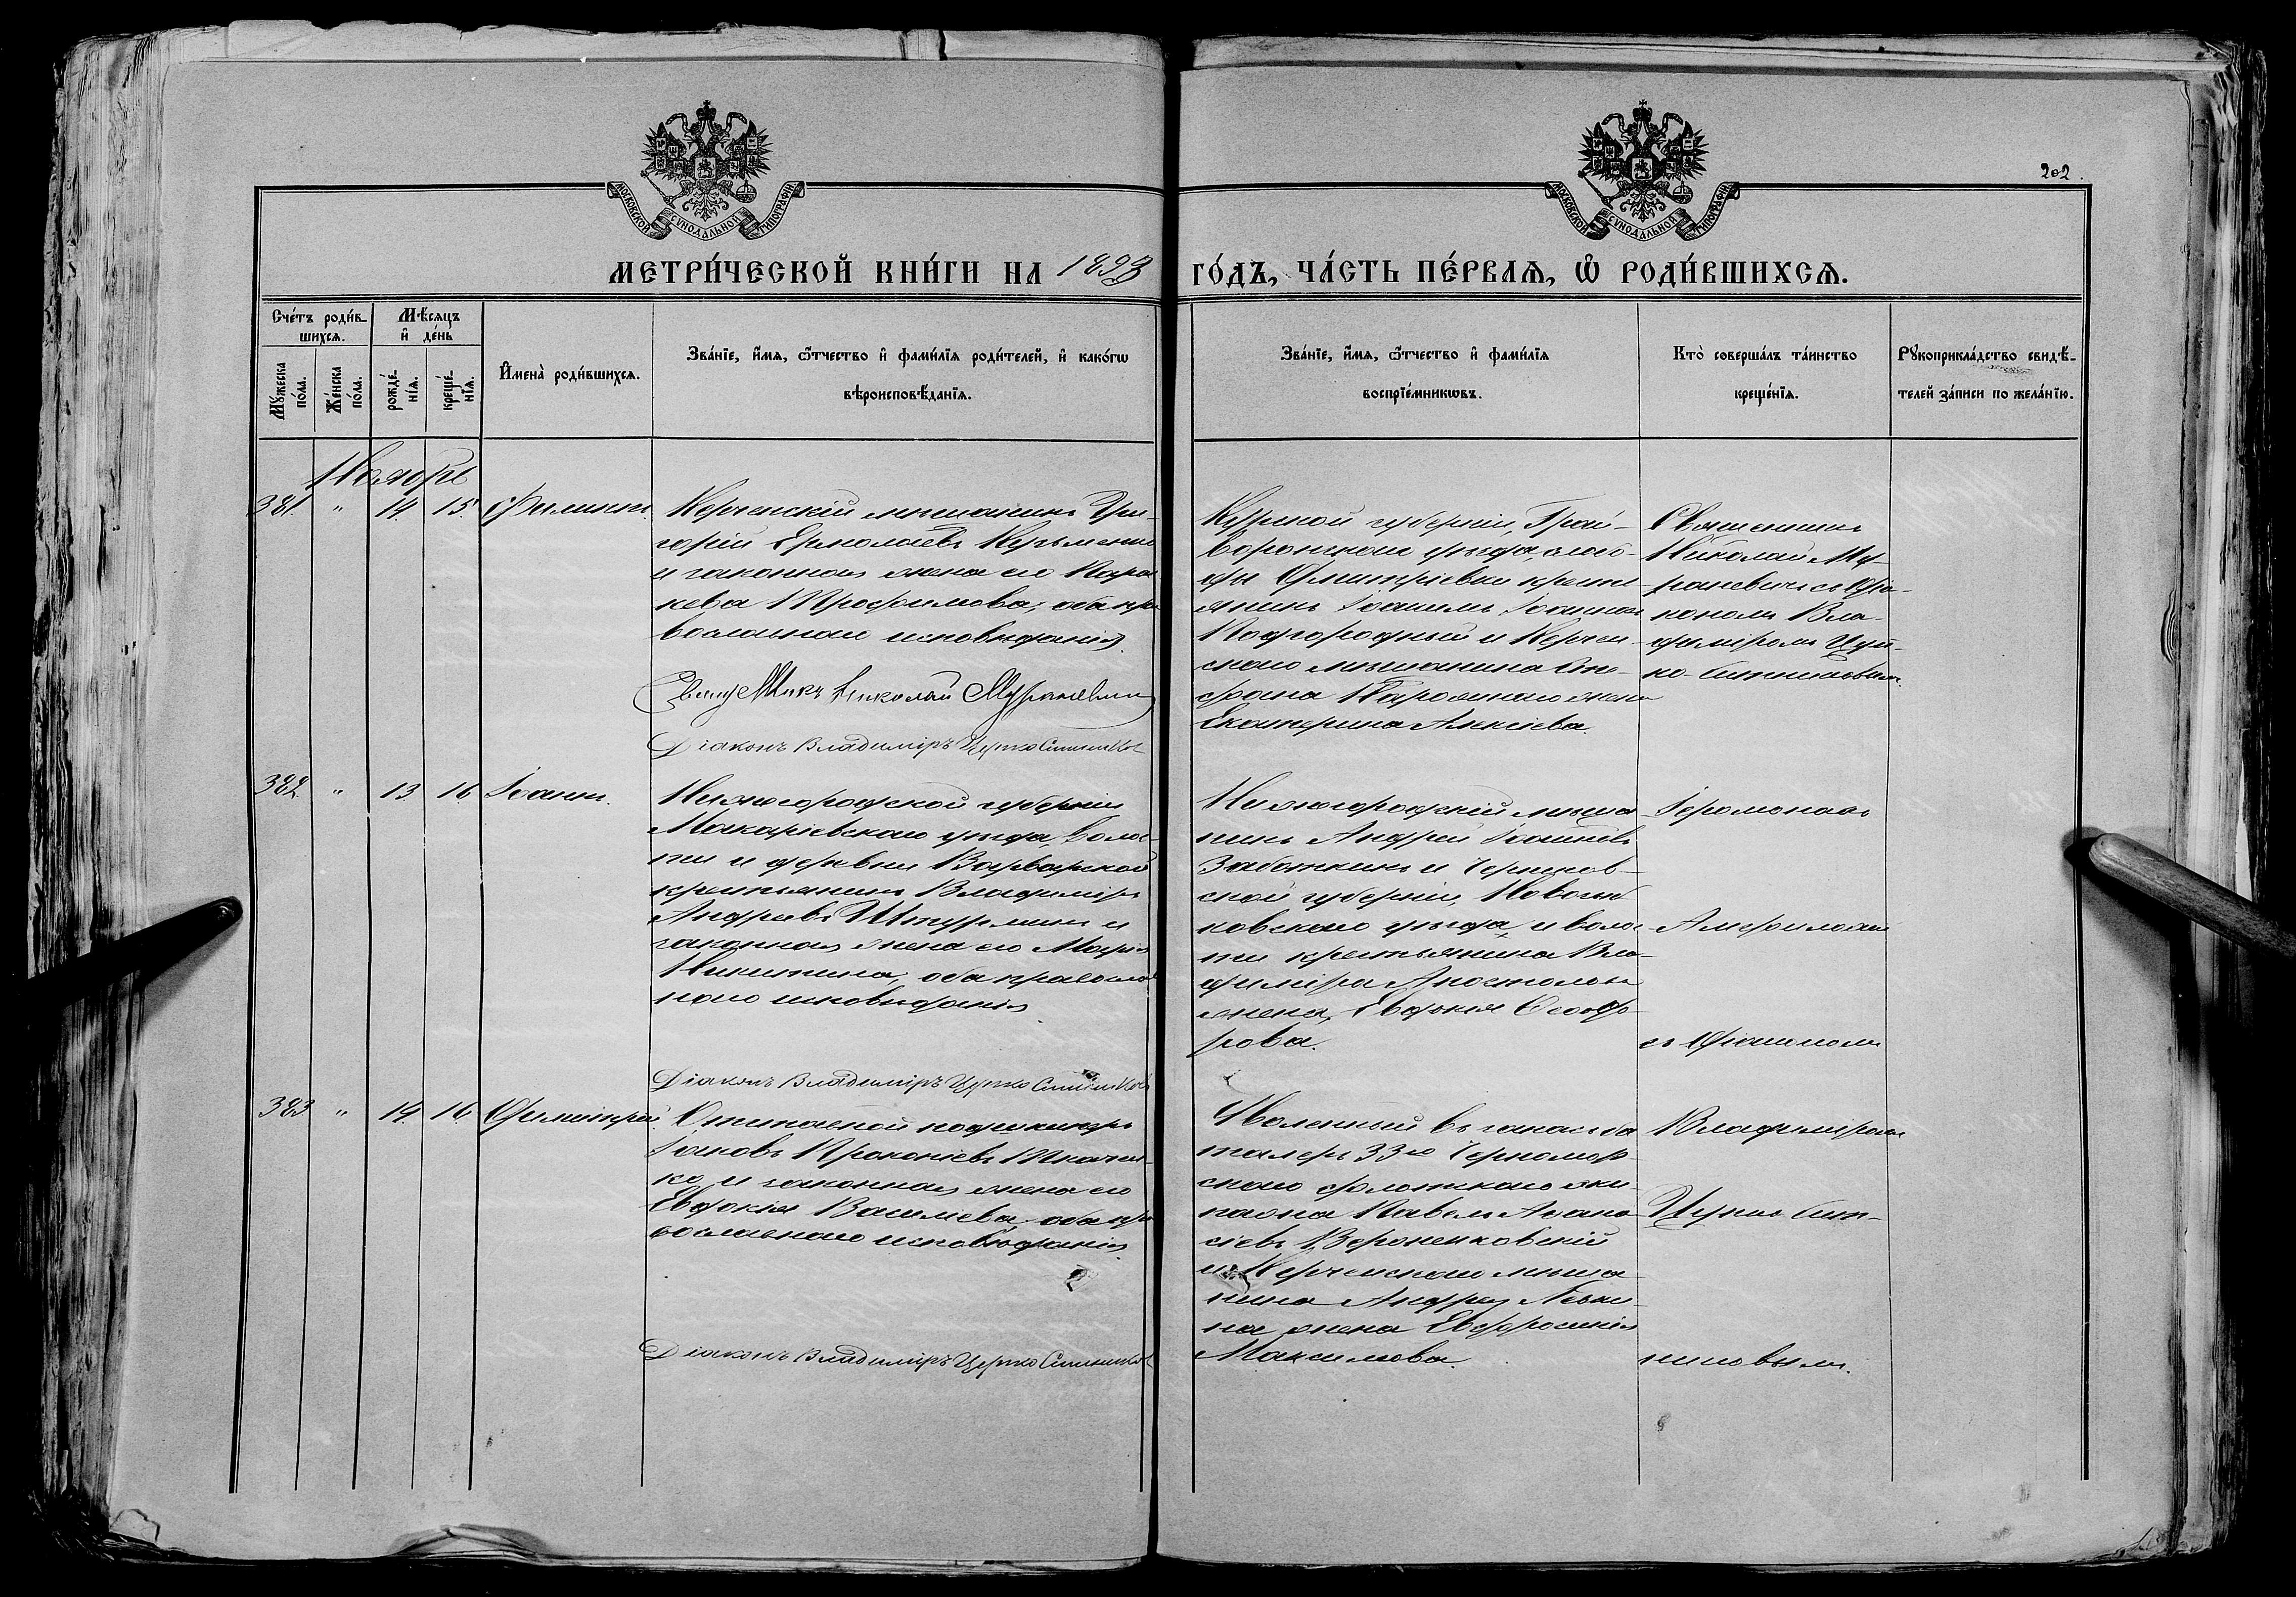 202.
МОСКОВСКОЙ СѴНОДАЛЬНОЙ ТИПОГРАФІИ
МОСКОВСКОЙ СѴНОДАЛЬНОЙ ТИПОГРАФІИ
МЕТРИ́ЧЕСКОЙ КНИ́ГИ НА 1893 ГО́ДЪ, ЧА́СТЬ ПЕ́РВАѦ, Ѡ҆ РОДИ́ВШИХСѦ.
Сче́тъ роди́в-
шихсѧ.
Мѣ́сѧцъ
и҆ де́нь
Мꙋ́жеска
по́ла.
Же́нска
по́ла.
рожде́-
нїѧ.
креще́-
нїѧ.
И҆мена̀ роди́вшихсѧ.
Зва́нїе, и҆́мѧ, ѻ҆́тчество и҆ фами́лїѧ роди́телей, и҆ како́гѡ
вѣроисповѣ́данїѧ.
Зва́нїе, и҆́мѧ, ѻ҆́тчество и҆ фами́лїѧ
воспрїе́мникѡвъ.
Кто̀ соверша́лъ та́инство
креще́нїѧ.
Рꙋкоприкла́дство свидѣ́-
телей за́писи по жела́нїю.
Ноябрь
381. " 14. 15. Филиппъ.
Керченскій мѣщанинъ Гри-
горій Ермолаевъ Кузьменко
и законная жена его Парас
кева Трофимова, оба пра
вославнаго исповѣданія.
Священникъ Николай Мураневичъ
Діаконъ Владиміръ Церко Ситниковъ
Курской губерніи, Грай-
воронскаго уѣзда, слобо-
ды Дмитріевки крестья
янинъ Іоакимъ Іоанновъ
Подгородный и Керчен-
скаго мѣщанина
жена
Екатерина Алексіева.
Священникъ
Николай Му-
раневичъ съ Діа-
кономъ Вла-
диміромъ Цер-
ко-Ситниковым.
382. " 13 16 Іоаннъ.
Нижегородской губерніи
Макаріевскаго уѣзда, волос-
ти и деревни Варварской
крестьянинъ Владиміръ
Андреевъ Штурминъ и
законная жена его Марія
Никитина, оба православ
наго исповѣданія
Діаконъ Владиміръ Церко Ситниковъ
Нижегородскій мѣща
нинъ Андрей Іоанновъ
Заботкинъ и Чернигов-
ской губерніи, Новозыб
ковскаго уѣзда, и волос
ти крестьянина Вла-
диміра Апостолы
жена, Евдокія Ѳеодо-
рова.
Іеромонахъ
Амфилохій
съ Діакономъ
383 " 14. 16. Димитрій
Отставной
Іаковъ Прокопіевъ Ткачен-
ко и законная жена его
Евдокія Васильева, оба пра
вославнаго исповѣданія.
Діаконъ Владиміръ Церко Ситниковъ
Уволенный въ запасъ ба
талеръ 33го Черномор
скаго флотскаго эки
пажа Павелъ Аѳана
сіевъ Вероненковскій
и Керченскаго мѣща
нина Андрея
на жена Евфросинія
Максимова.
Владиміромъ
Церко Сит-
никовымъ.